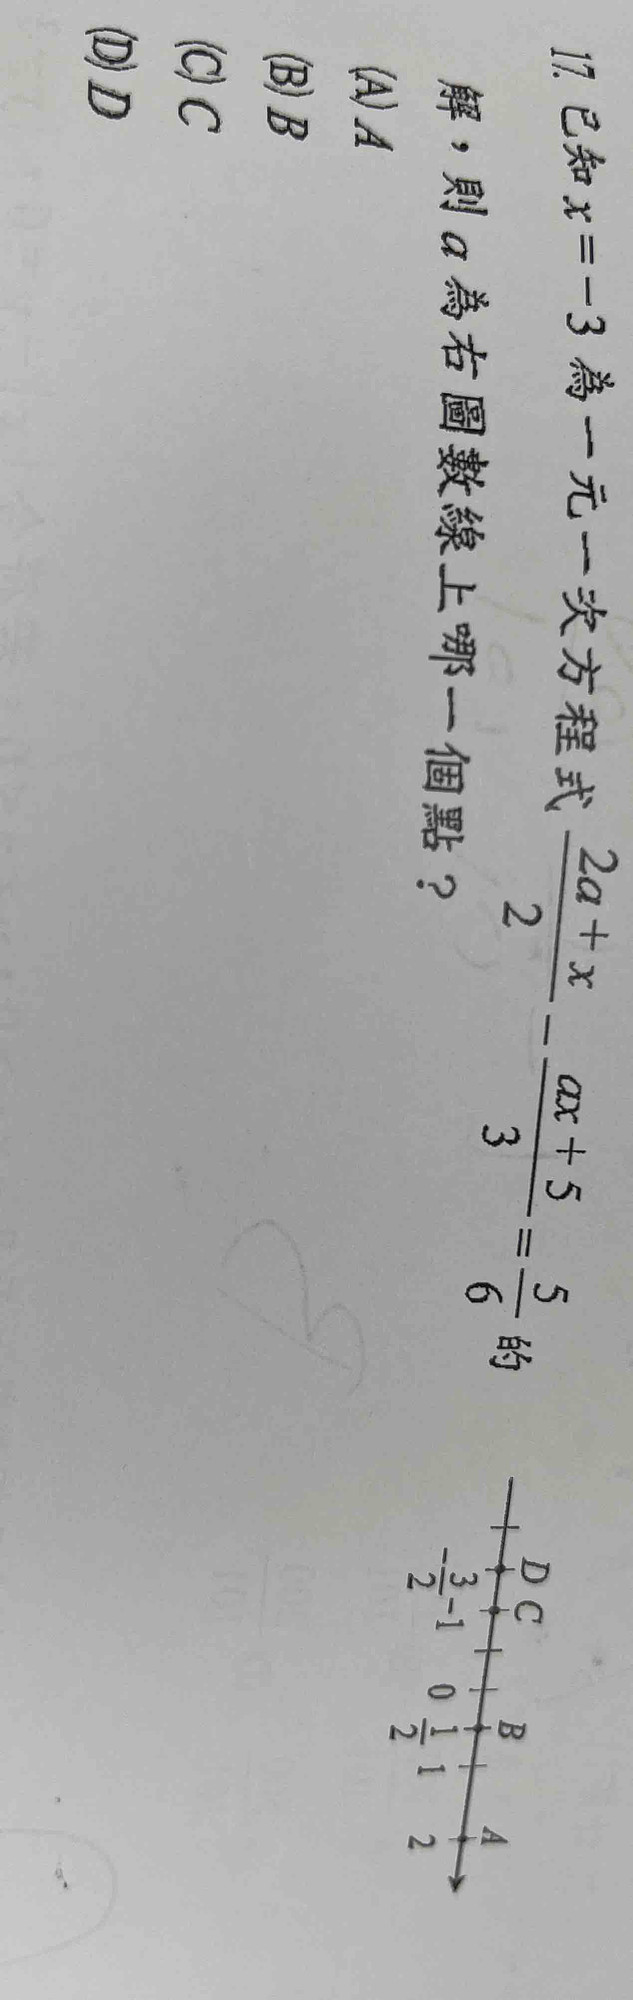 17. 已知 x = −3 為一元一次方程式 \frac{2a + x}{2} − \frac{ax + 5}{3} = \frac{5}{6} 的
解，則 a 為右圖數線上哪一個點？
(A) A
(B) B
(C) C
(D) D
D C B A
−\frac{3}{2} −1 0 \frac{1}{2} 1 2